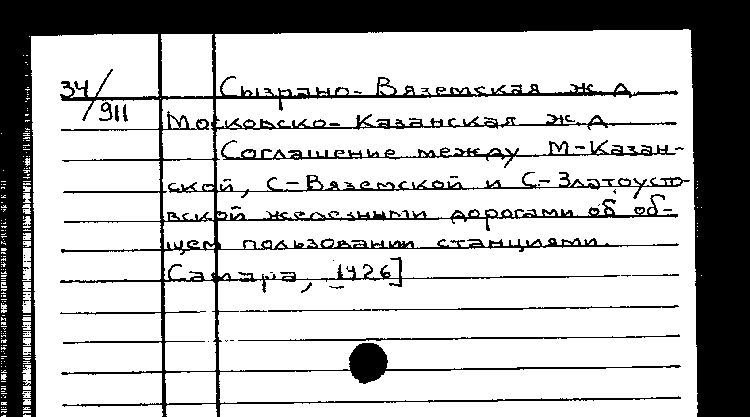 34/911
Сызрано-Вяземская ж. д.
Московско-Казанская ж. д.
Соглашение между М-Казан-
ской, С-Вяземской и С-Златоусто-
вской железными дорогами об об-
щем пользовании станциями.
Самара, [1926]